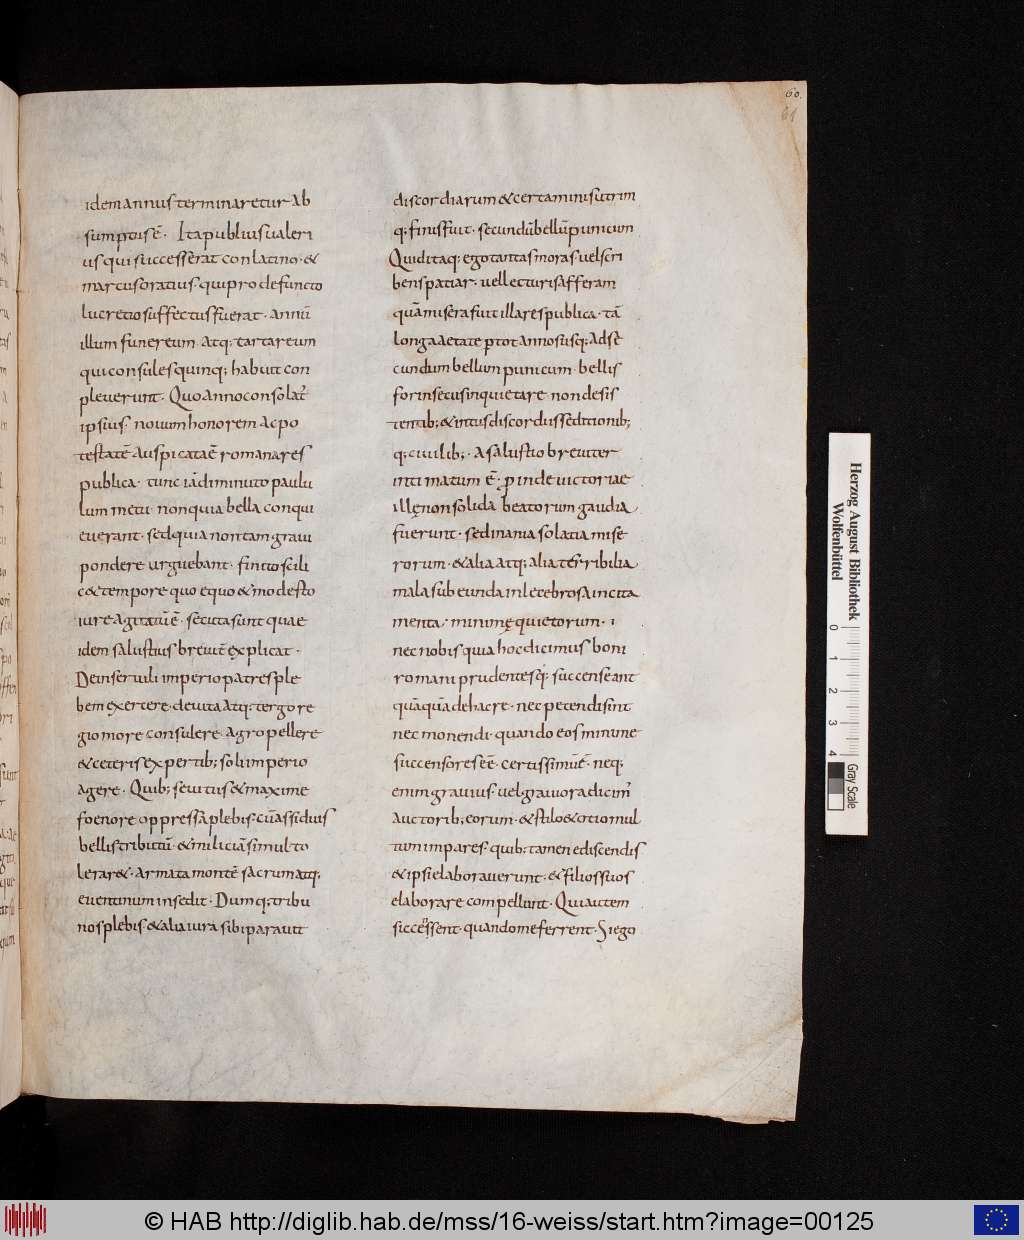 60.
61
idem annus terminaretur ab
sumptoisē. Ita publius ualeri
us qui successerat conlatino. &
marcus oratius. qui pro defuncto
lucretio suffectus fuerat. annū
illum funereum atq; tartareum
qui consules quinq; habuit con
pleuerunt. Quo anno consolat᷑
ipsius. nouum honorem ac po
testatē auspicataē romana res
publica. tunc iā diminuto paulu
lum metu. non quia bella conqui
euerant. sed quia non tam graui
pondere urguebant. finito scili
c& tempore quo equo & modesto
iure agitatūē. secuta sunt quae
idem salustius breuit̄ explicat.
Dein seruili imperio patres ple
bem exercere. de uita atq; tergo re
gio more consulere. agro pellere
& ceteris expertib; soli imperio
agere. Quib; seuitiis & maxime
foenore oppressā plebis. cū assiduis
bellis tributū. & miliciā simul to
lerar&. armata montē sacrum atq;
euentinum insedit. Dumq; tribu
nos plebis. & alia iura sibi parauit
discordiarum & certaminis utrim
q; finis fuit. secundū bellū punicum
Quid itaq; ego tantas moras uel scri
bens patiar. uel lecturis afferam
quā misera fuit illa respublica. tā
longa aetate p tot annos usq; ad se
cundum bellum punicum. bellis
forinsecus inquietare non desis
tentib; & intus discordiis seditionib;
q; ciuilib;. a salustio breuiter
intimatum ē. proinde uictoriae
illę non solida beatorum gaudia
fuerunt. sed inania solatia mise
rorum. & alia atq; alia terribilia
mala subeunda inlecebrosa incita
menta. minimę quietorum. i
nec nobis quia hoc dicimus boni
romani prudentesq; succenseant
quāquā de hac re. nec petendi sint
nec monendi. quando eos minime
succensores eē. certissimūē. neq;
enim grauius. uel grauiora dicim᷑
auctorib; eorum. & stilo & otio mul
tum impares. quib; tamen ediscendis
& ipsi elaborauerunt. & filios suos
elaborare compellunt. Qui autem
succēssent. quando me ferrent. Si ego
Herzog August Bibliothek
Wolfenbüttel
0 1 2 3 4
Gray Scale
© HAB http://diglib.hab.de/mss/16-weiss/start.htm?image=00125